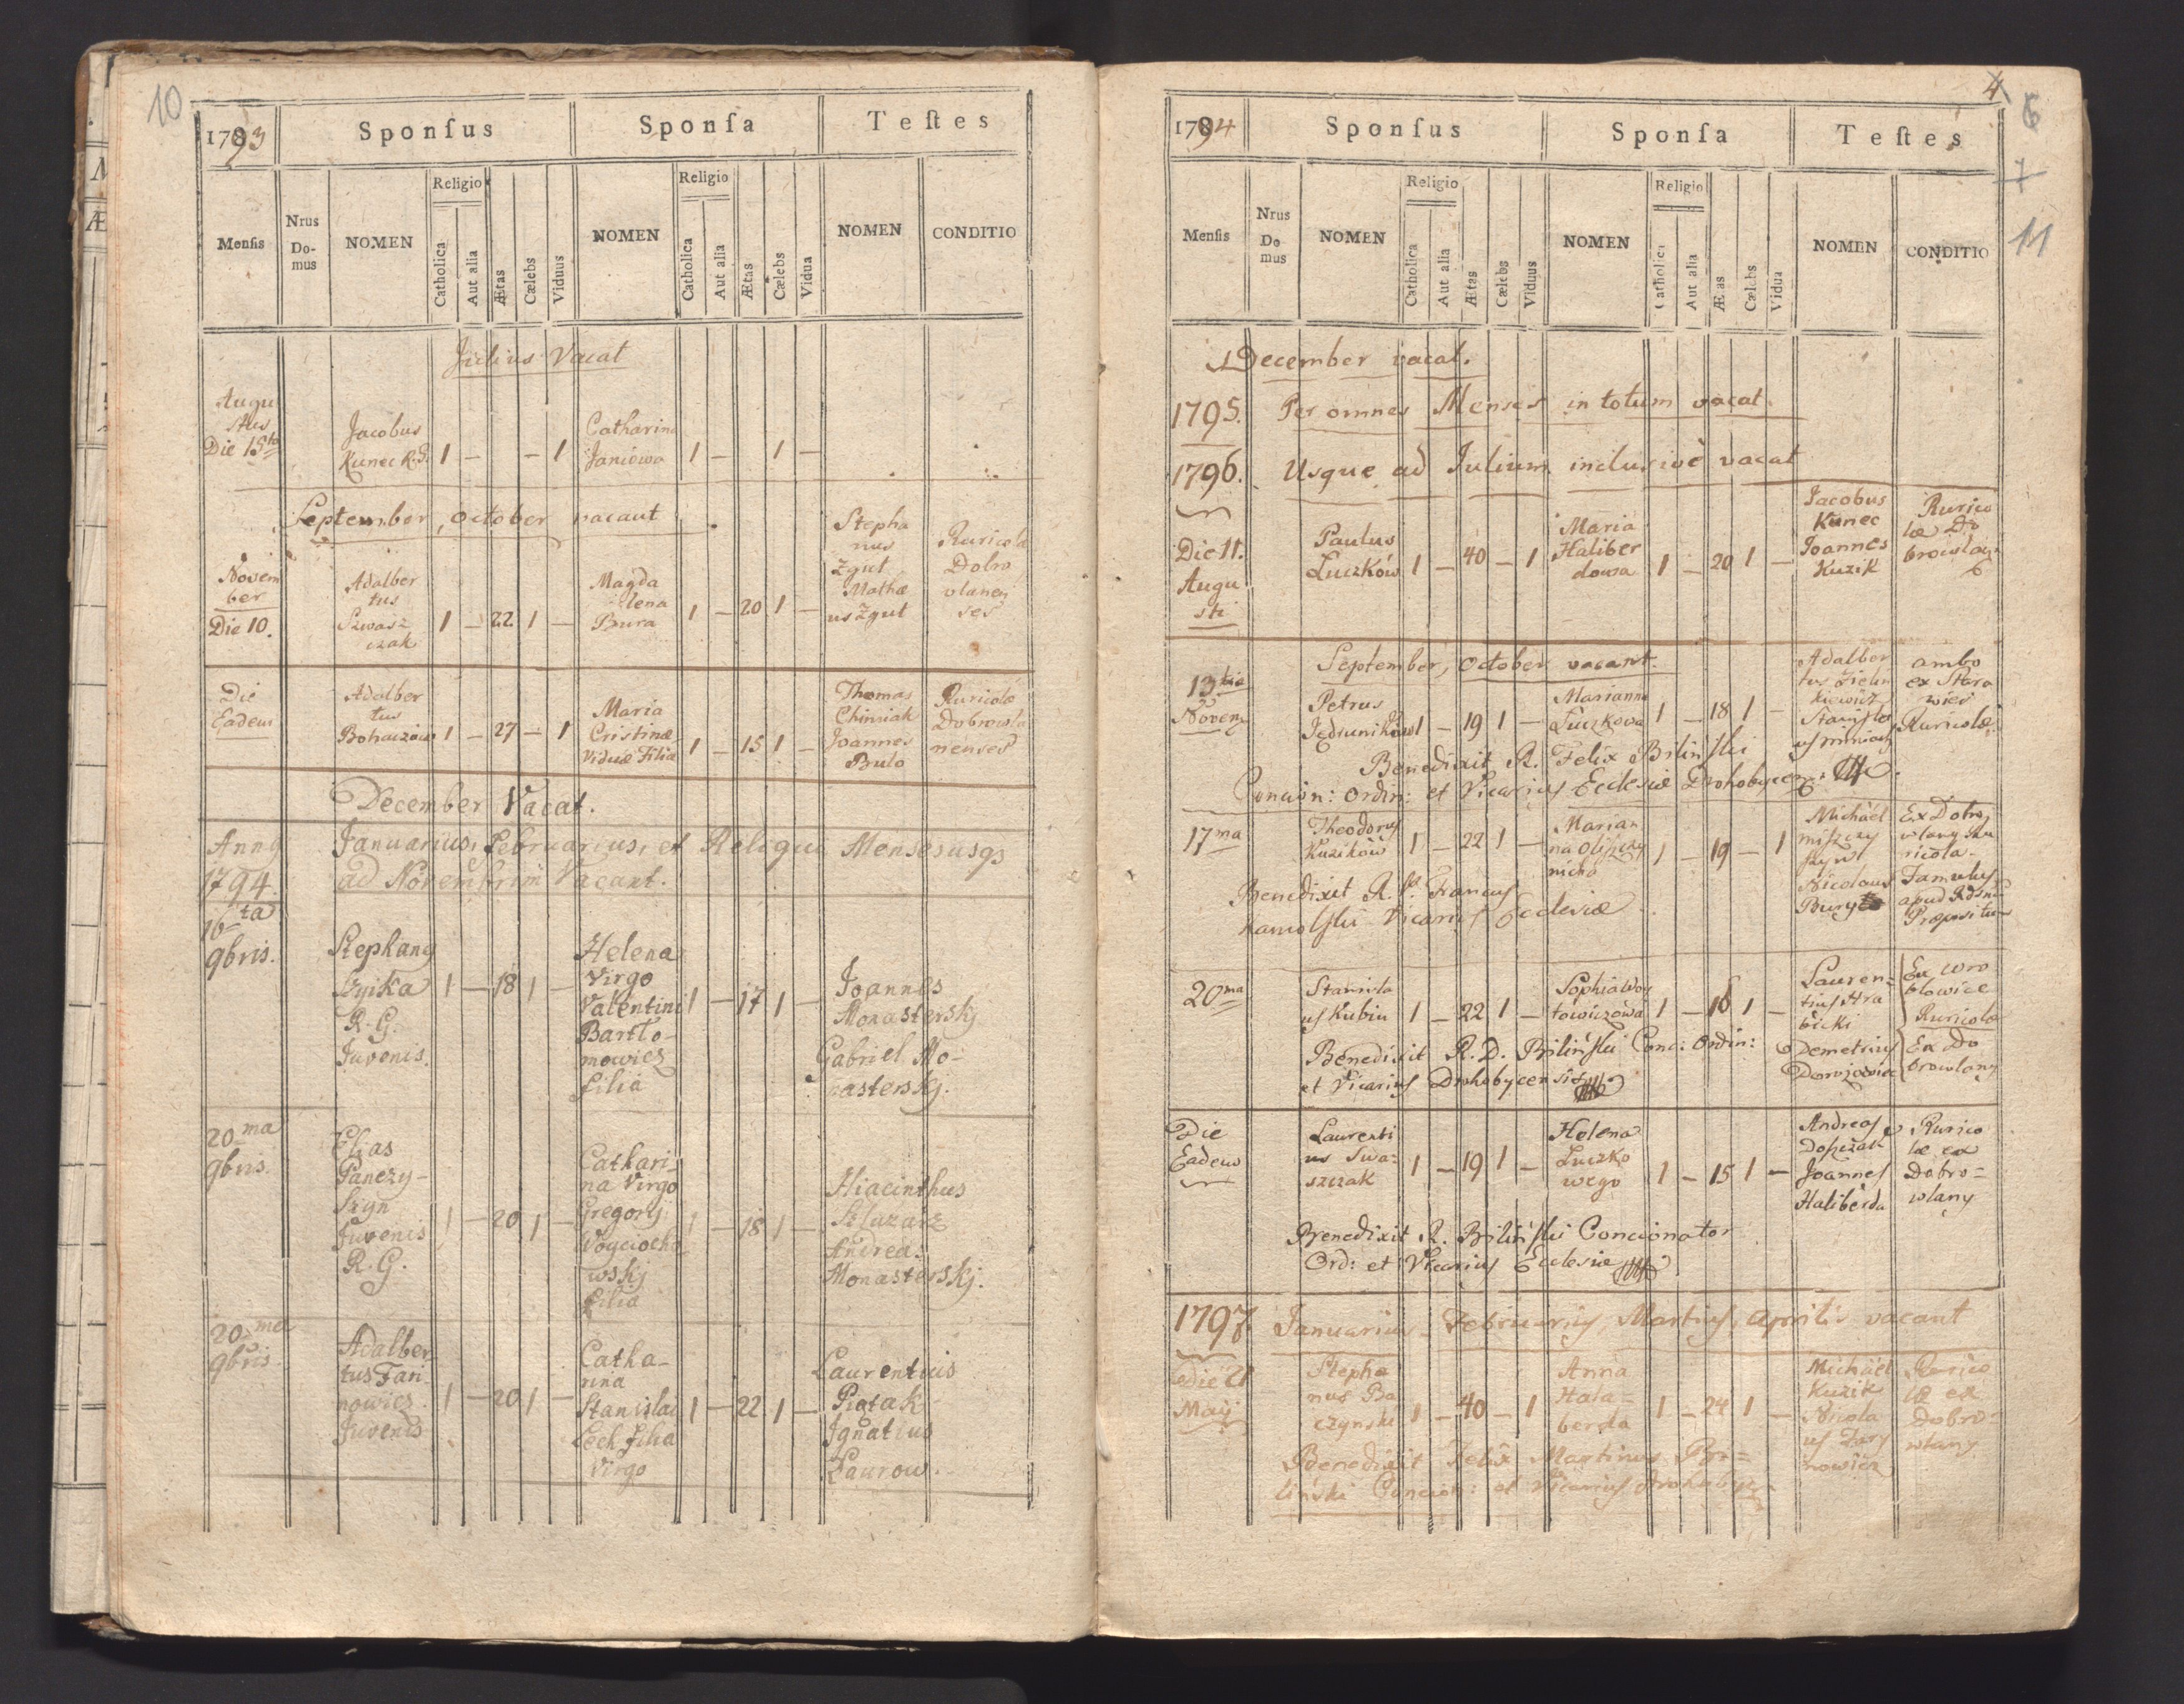 10
1793
Sponſus
Sponſa
Teſtes
Menſis
Nrus Do- mus
NOMEN
Religio
Catholica
Aut alia
Ætas
Cælebs
Viduus
NOMEN
Religio
Catholica
Aut alia
Ætas
Cælebs
Vidua
NOMEN
CONDITIO
Julius Vacat
Augu
stus
Die 15ta
Jacobus
Kunec R.G. 1 — — 1
Catharina
Janiowa 1 — 1 —
September, October vacant
Novem
ber
Die 10.
Adalber
tus
Szwasz
czak 1 — 22 1 —
Magda
lena
Bura 1 — 20 1 —
Stepha
nus
Zgut
Mathæ
us Zgut
Ruricola
Dobro
vlanen
ses
Die
Eadem
Adalber
tus
Bohaczow 1 — 27 — 1
Maria
Cristinæ
Viduæ Filia 1 — 15 1 —
Thomas
Chimiak
Joannes
Bula
Ruricolæ
Dobrowla
nenses
December Vacat.
Anng
1794
Januarius, Februarius, et Reliqui Menses usqs
ad Novembrim Vacant.
16ta
9bris.
Stephang
Szyika
R. G.
Juvenis. 1 — 18 1 —
Helena
Virgo
Valentini
Bartło-
mowicz
filia 1 — 17 1 —
Joannes
Monasterskj
Gabriel Mo-
nasterskj.
20ma
9bris.
Elias
Panczy-
szyn
Juvenis
R. G. 1 — 20 1 —
Cathari-
na Virgo
Gregorij
Woyciecho
wskj
filia 1 — 18 1 —
Hiacinthus
Szluzarz
Andreas
Monasterskj.
20ma
9bris
Adalber
tus Fari
nowicz.
Juvenis 1 — 20 1 —
Catha-
rina
Stanislai
Lech filia
Virgo 1 — 22 1 —
Laurentius
Piątak
Ignatius
Laurow.
4
6
7
11
1794
Sponſus
Sponſa
Teſtes
Menſis
Nrus Do mus
NOMEN
Religio
Catholica
Aut alia
Ætas
Cælebs
Viduus
NOMEN
Religio
Catholica
Aut alia
Æ as
Cælebs
Vidua
NOMEN
CONDITIO
December vacat.
1795. Per omnes Menses in totum vacat.
1796. Usque ad Julium inclusivè vacat
Die 11.
Augu
sti
Paulus
Luczków 1 — 40 — 1
Maria
Haliber
dowa 1 — 20 1 —
Jacobus
Kunec
Joannes
Kuzik
Rurico
læ Do
browlay
September, October vacant.
13tia
Novem
Petrus
Jędruników 1 — 19 1 —
Marianna
Luczkowa 1 — 18 1 —
Adalber
tus Zielin
kiewicz
Stanisla
us
ambo
ex Stara
wieś
Ruricolæ
Benedixit R. Felix Biliński
Concion: ordin: et Vicarius Ecclesiæ Drohobycen.
17ma
Theodorus
Kuzików 1 — 22 1 —
Marian
na Olijczy
nicho 1 — 19 — 1
Michäel
miszczy
szyn
Nicolaus
Bury
Ex Dobro
wlany Ru
ricola.
Famulus
apud Rdum
Præpositum
Benedixit R. Francus
Vicarius Ecclesiæ
20ma
Stanisla
us Kubiu 1 — 22 1 —
Sophia Woy
towiczowa 1 — 18 1 —
Lauren-
tius Hra
bicki
Demetrius
Ex Wro
blowice
Ruricola
Ex Do
browlany
Benedixit R. D. Biliński Conc: Ordin:
et Vicarius Drohobycensis
Die
Eadem
Laurenti
us Swa-
szczak 1 — 19 1 —
Helena
Luczko
wego 1 — 15 1 —
Andreas
Dopczak
Joannes
Haliberda
Rurico
læ ex
Dobro-
wlany
Benedixit R. Biliński Concionator
Ord: et Vicarius Ecclesiæ
1797. Januarius, Februarius, Martius, Aprilis vacant
Die 21
Maij
Stepha
nus Ba
czynski 1 — 40 — 1
Anna
Hala-
berda 1 — 24 1 —
Michäel
Kuzik
Nicola
us Zary
nowicz
Rurico
læ ex
Dobro-
wlany
Benedixit Felix Martinus Bi-
liński Concion: et Vicarius Drohobycz.